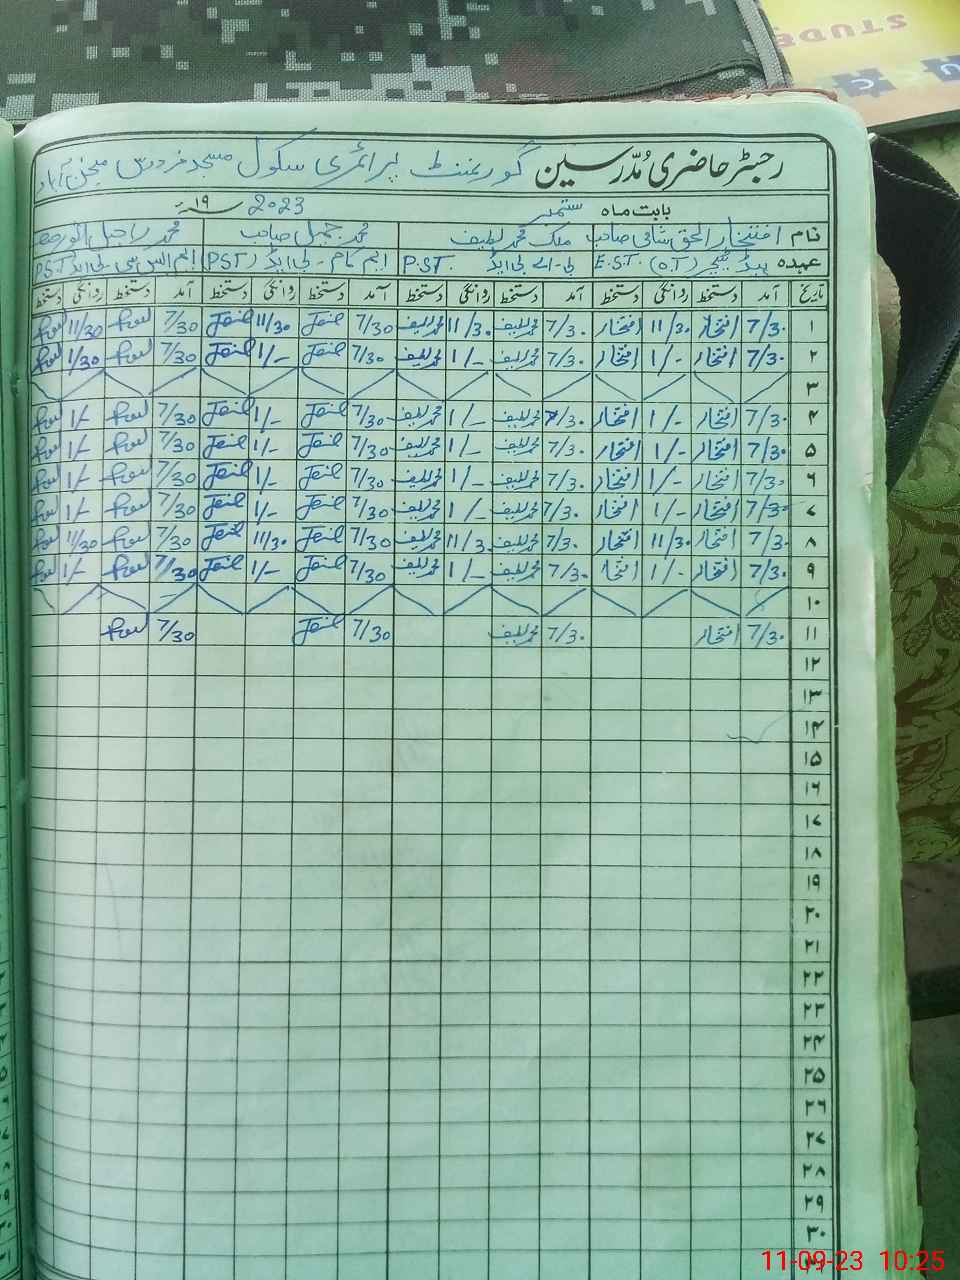 STUDE
U C
رجسٹر حاضری مُدّرسین گورنمنٹ پرائمری سکول مسجد فردوس
بابت ماہ ستمبر 2023 ۱۹ سنہ ء
نام افتخار الحق شامی صاحب ملک محمد لطیف محمد جمیل صاحب محمد راحیل انور
عہدہ ہیڈ ٹیچر (O.T) E.S.T. بی-اے بی ایڈ P.S.T. ایم کام - بی ایڈ (PST) ایم ایس سی - بی ایڈ P.S.T
تاریخ آمد دستخط روانگی دستخط آمد دستخط روانگی دستخط آمد دستخط روانگی دستخط آمد دستخط روانگی دستخط
۱ 7/30 افتخار 11/30 افتخار 7/30 محمد لطیف 11/30 محمد لطیف 7/30 Jamil 11/30 Jamil 7/30 11/30
۲ 7/30 افتخار 1/- افتخار 7/30 محمد لطیف 1/- محمد لطیف 7/30 Jamil 1/- Jamil 7/30 1/30
۳
۴ 7/30 افتخار 1/- افتخار 7/30 محمد لطیف 1/- محمد لطیف 7/30 Jamil 1/- Jamil 7/30 1/-
۵ 7/30 افتخار 1/- افتخار 7/30 محمد لطیف 1/- محمد لطیف 7/30 Jamil 1/- Jamil 7/30 1/-
۶ 7/30 افتخار 1/- افتخار 7/30 محمد لطیف 1/- محمد لطیف 7/30 Jamil 1/- Jamil 7/30 1/-
۷ 7/30 افتخار 1/- افتخار 7/30 محمد لطیف 1/- محمد لطیف 7/30 Jamil 1/- Jamil 7/30 1/-
۸ 7/30 افتخار 11/30 افتخار 7/30 محمد لطیف 11/30 محمد لطیف 7/30 Jamil 11/30 Jamil 7/30 11/30
۹ 7/30 افتخار 1/- افتخار 7/30 محمد لطیف 1/- محمد لطیف 7/30 Jamil 1/- Jamil 7/30 1/-
۱۰
۱۱ 7/30 افتخار 7/30 محمد لطیف 7/30 Jamil 7/30
۱۲
۱۳
۱۴
۱۵
۱۶
۱۷
۱۸
۱۹
۲۰
۲۱
۲۲
۲۳
۲۴
۲۵
۲۶
۲۷
۲۸
۲۹
۳۰
11-09-23 10:25